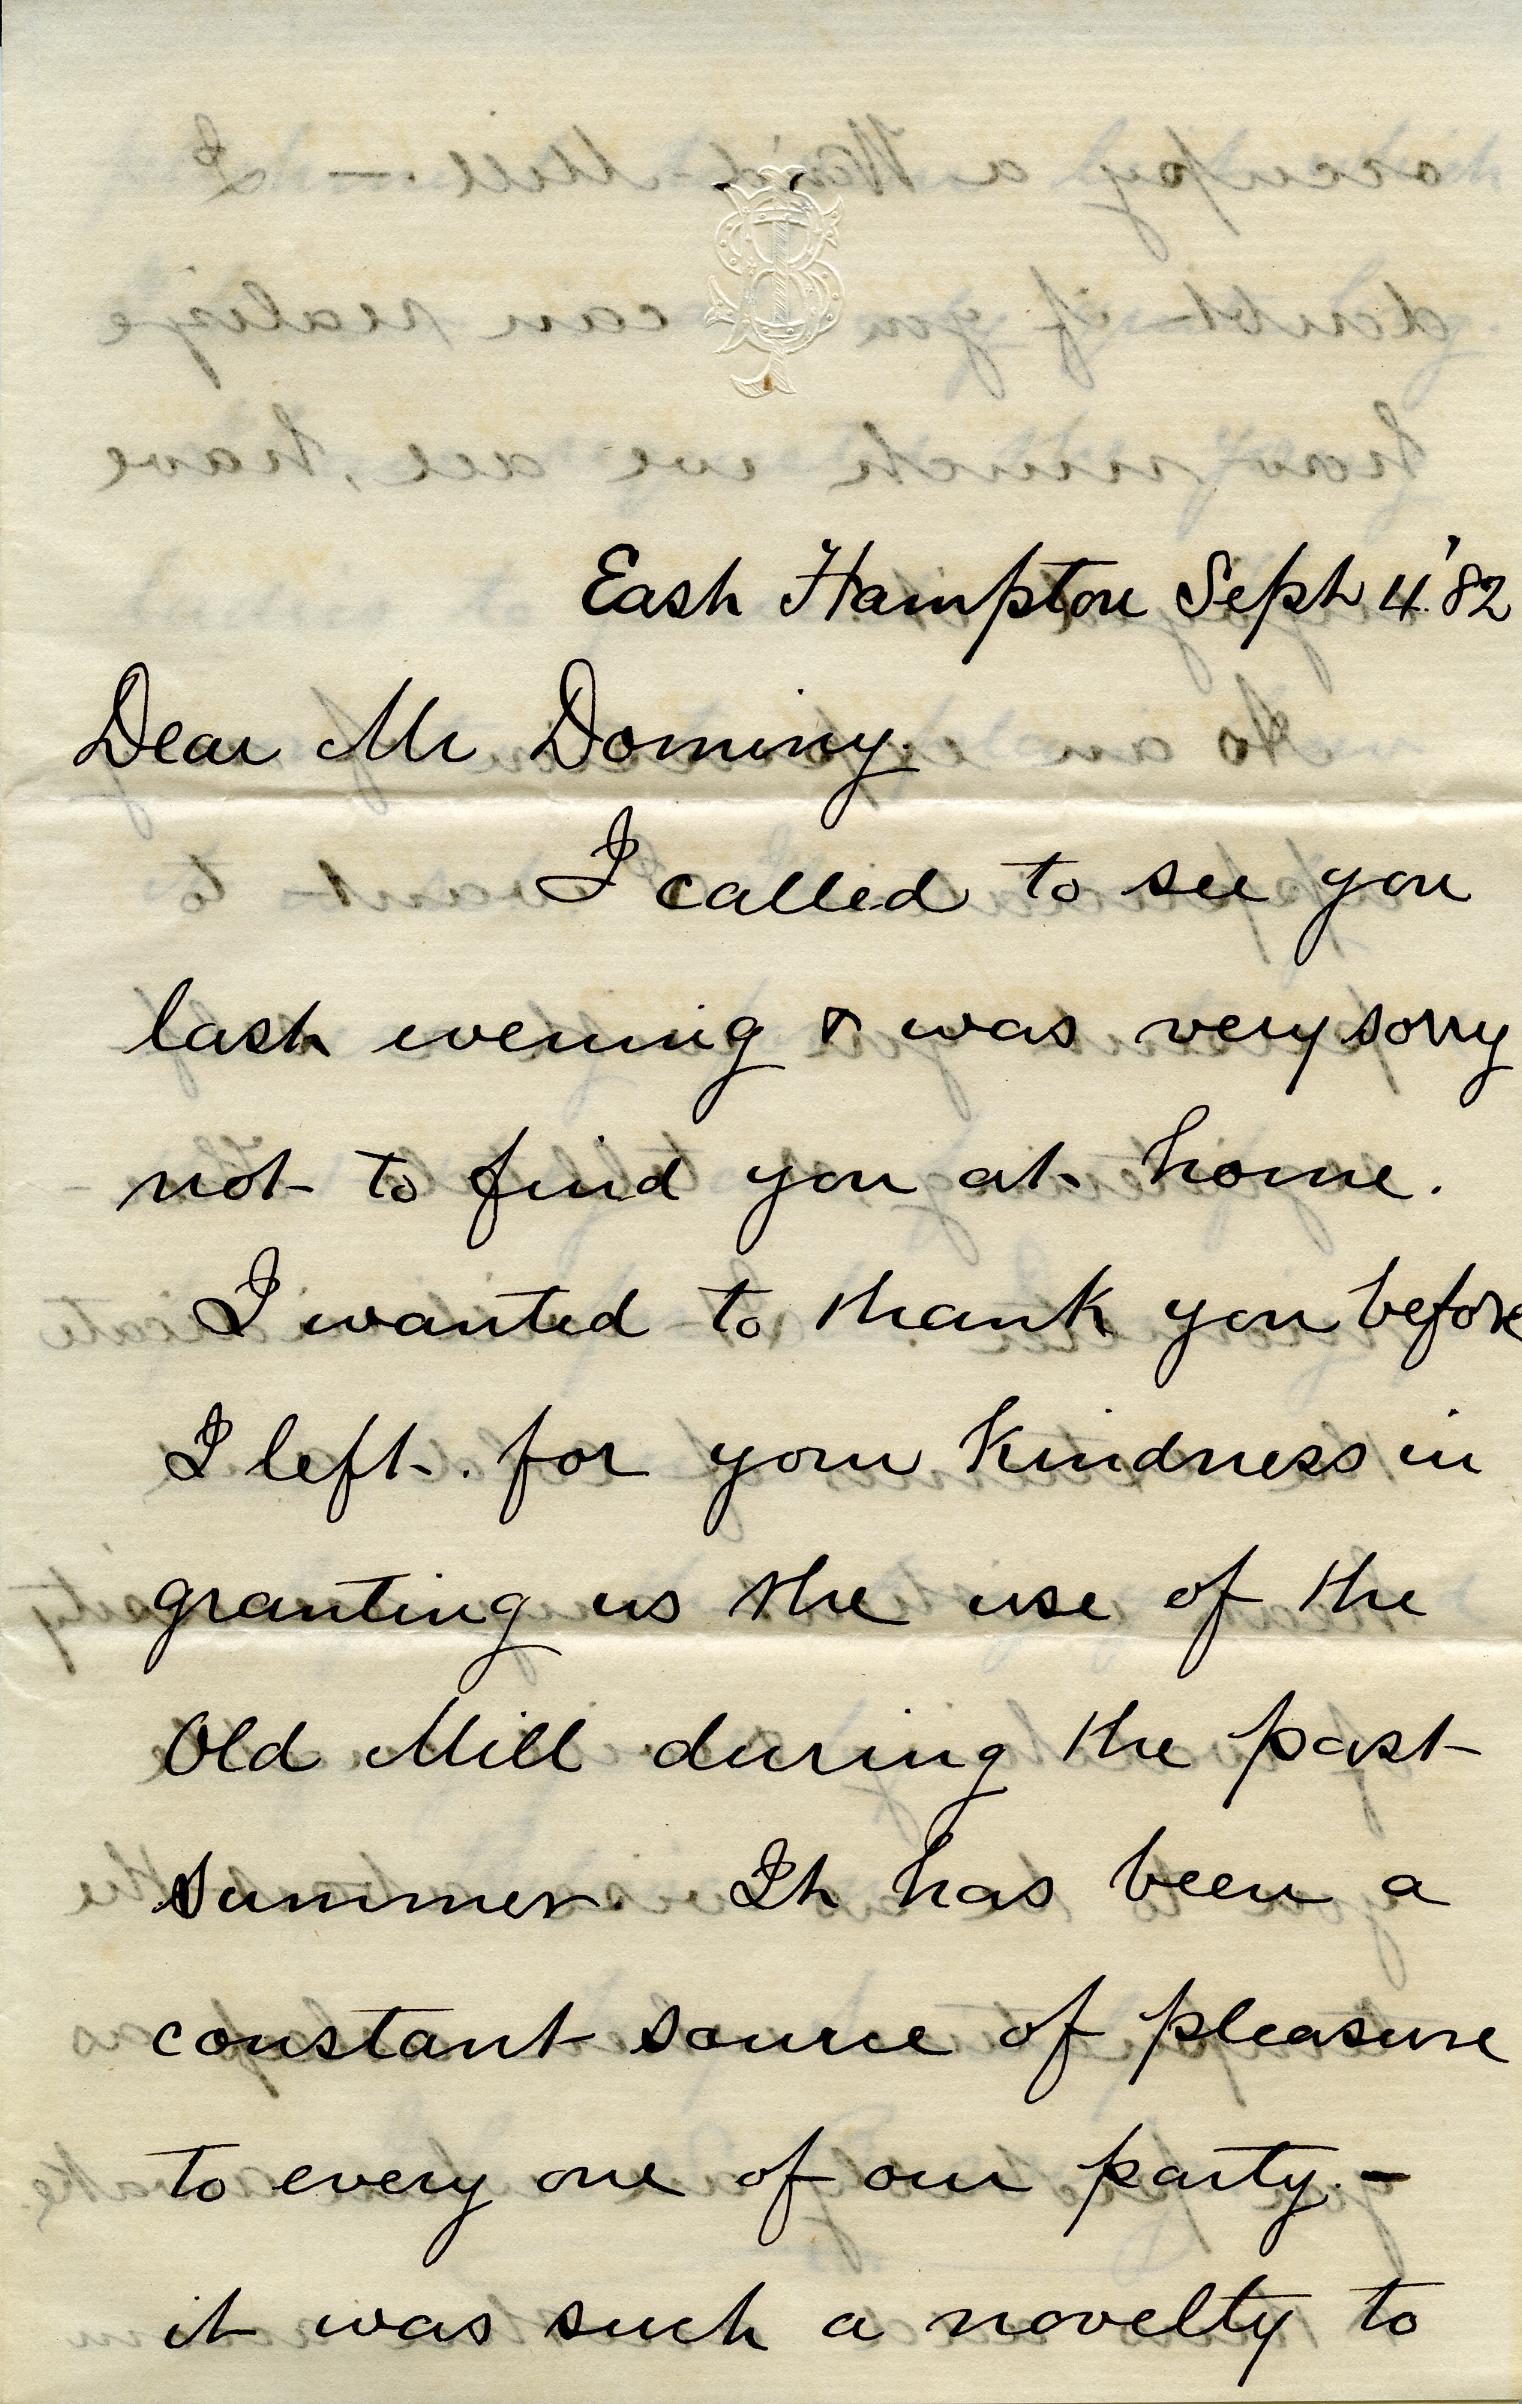 East Hampton Sept 4. '82
Dear Mr Dominy.
I called to see you
last evening & was very sorry
not to find you at home.
I wanted to thank you before
I left. for your kindness in
granting us the use of the
Old Mill during the past
summer. It has been a
constant source of pleasure
to every one of our party. -
it was such a novelty to